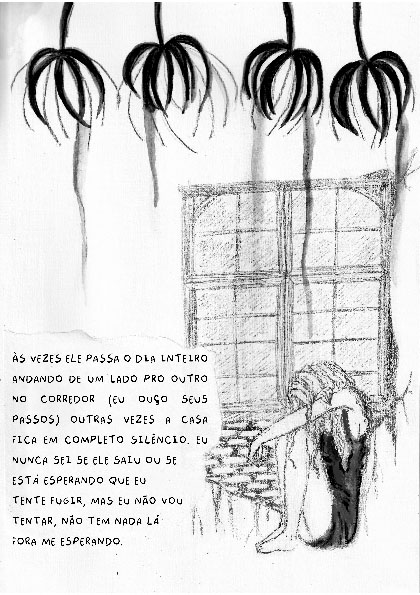 ÀS VEZES ELE PASSA O DIA INTEIRO
ANDANDO DE UM LADO PRO OUTRO
NO CORREDOR (EU OUÇO SEUS
PASSOS) OUTRAS VEZES A CASA
FICA EM COMPLETO SILÊNCIO. EU
NUNCA SEI SE ELE SAIU OU SE
ESTÁ ESPERANDO QUE EU
TENTE FUGIR, MAS EU NÃO VOU
TENTAR, NÃO TEM NADA LÁ
FORA ME ESPERANDO.